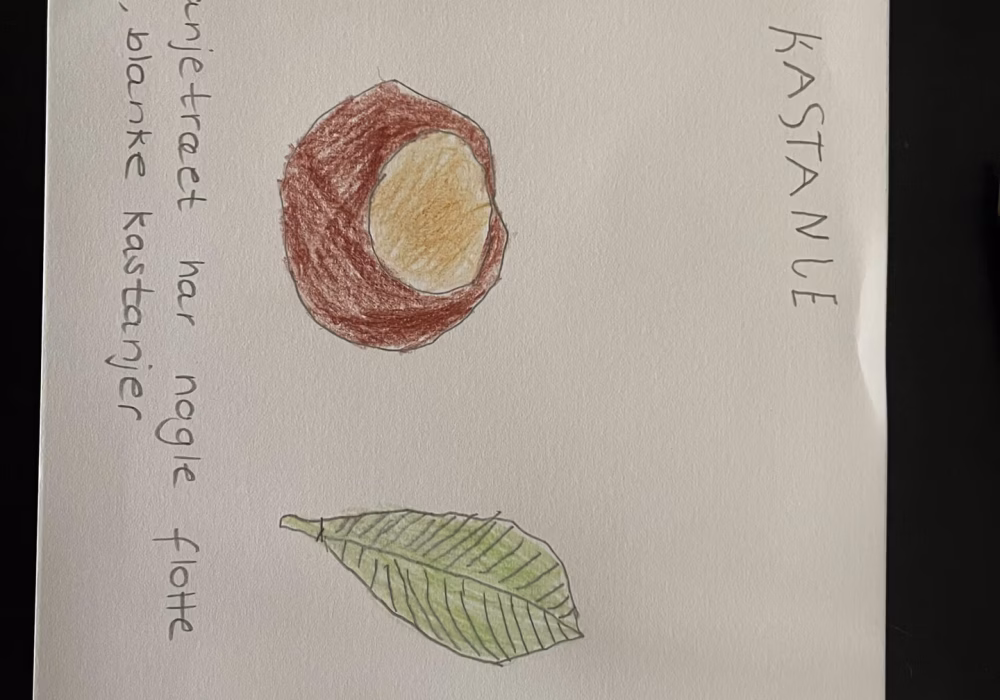 KASTANLE
anjetræet har nogle flotte
, blanke kastanjer